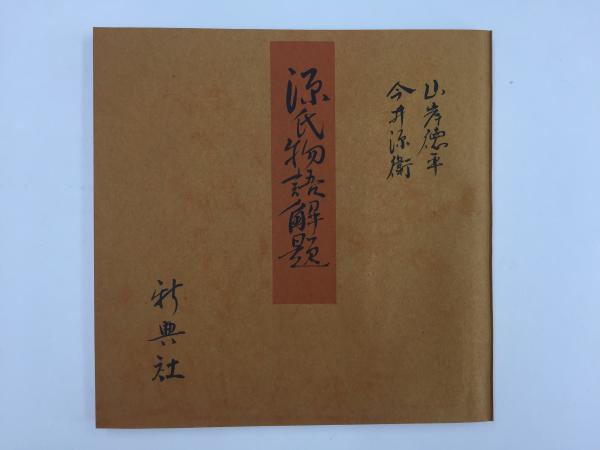 山岸徳平
今井源衛
源氏物語解題
新典社